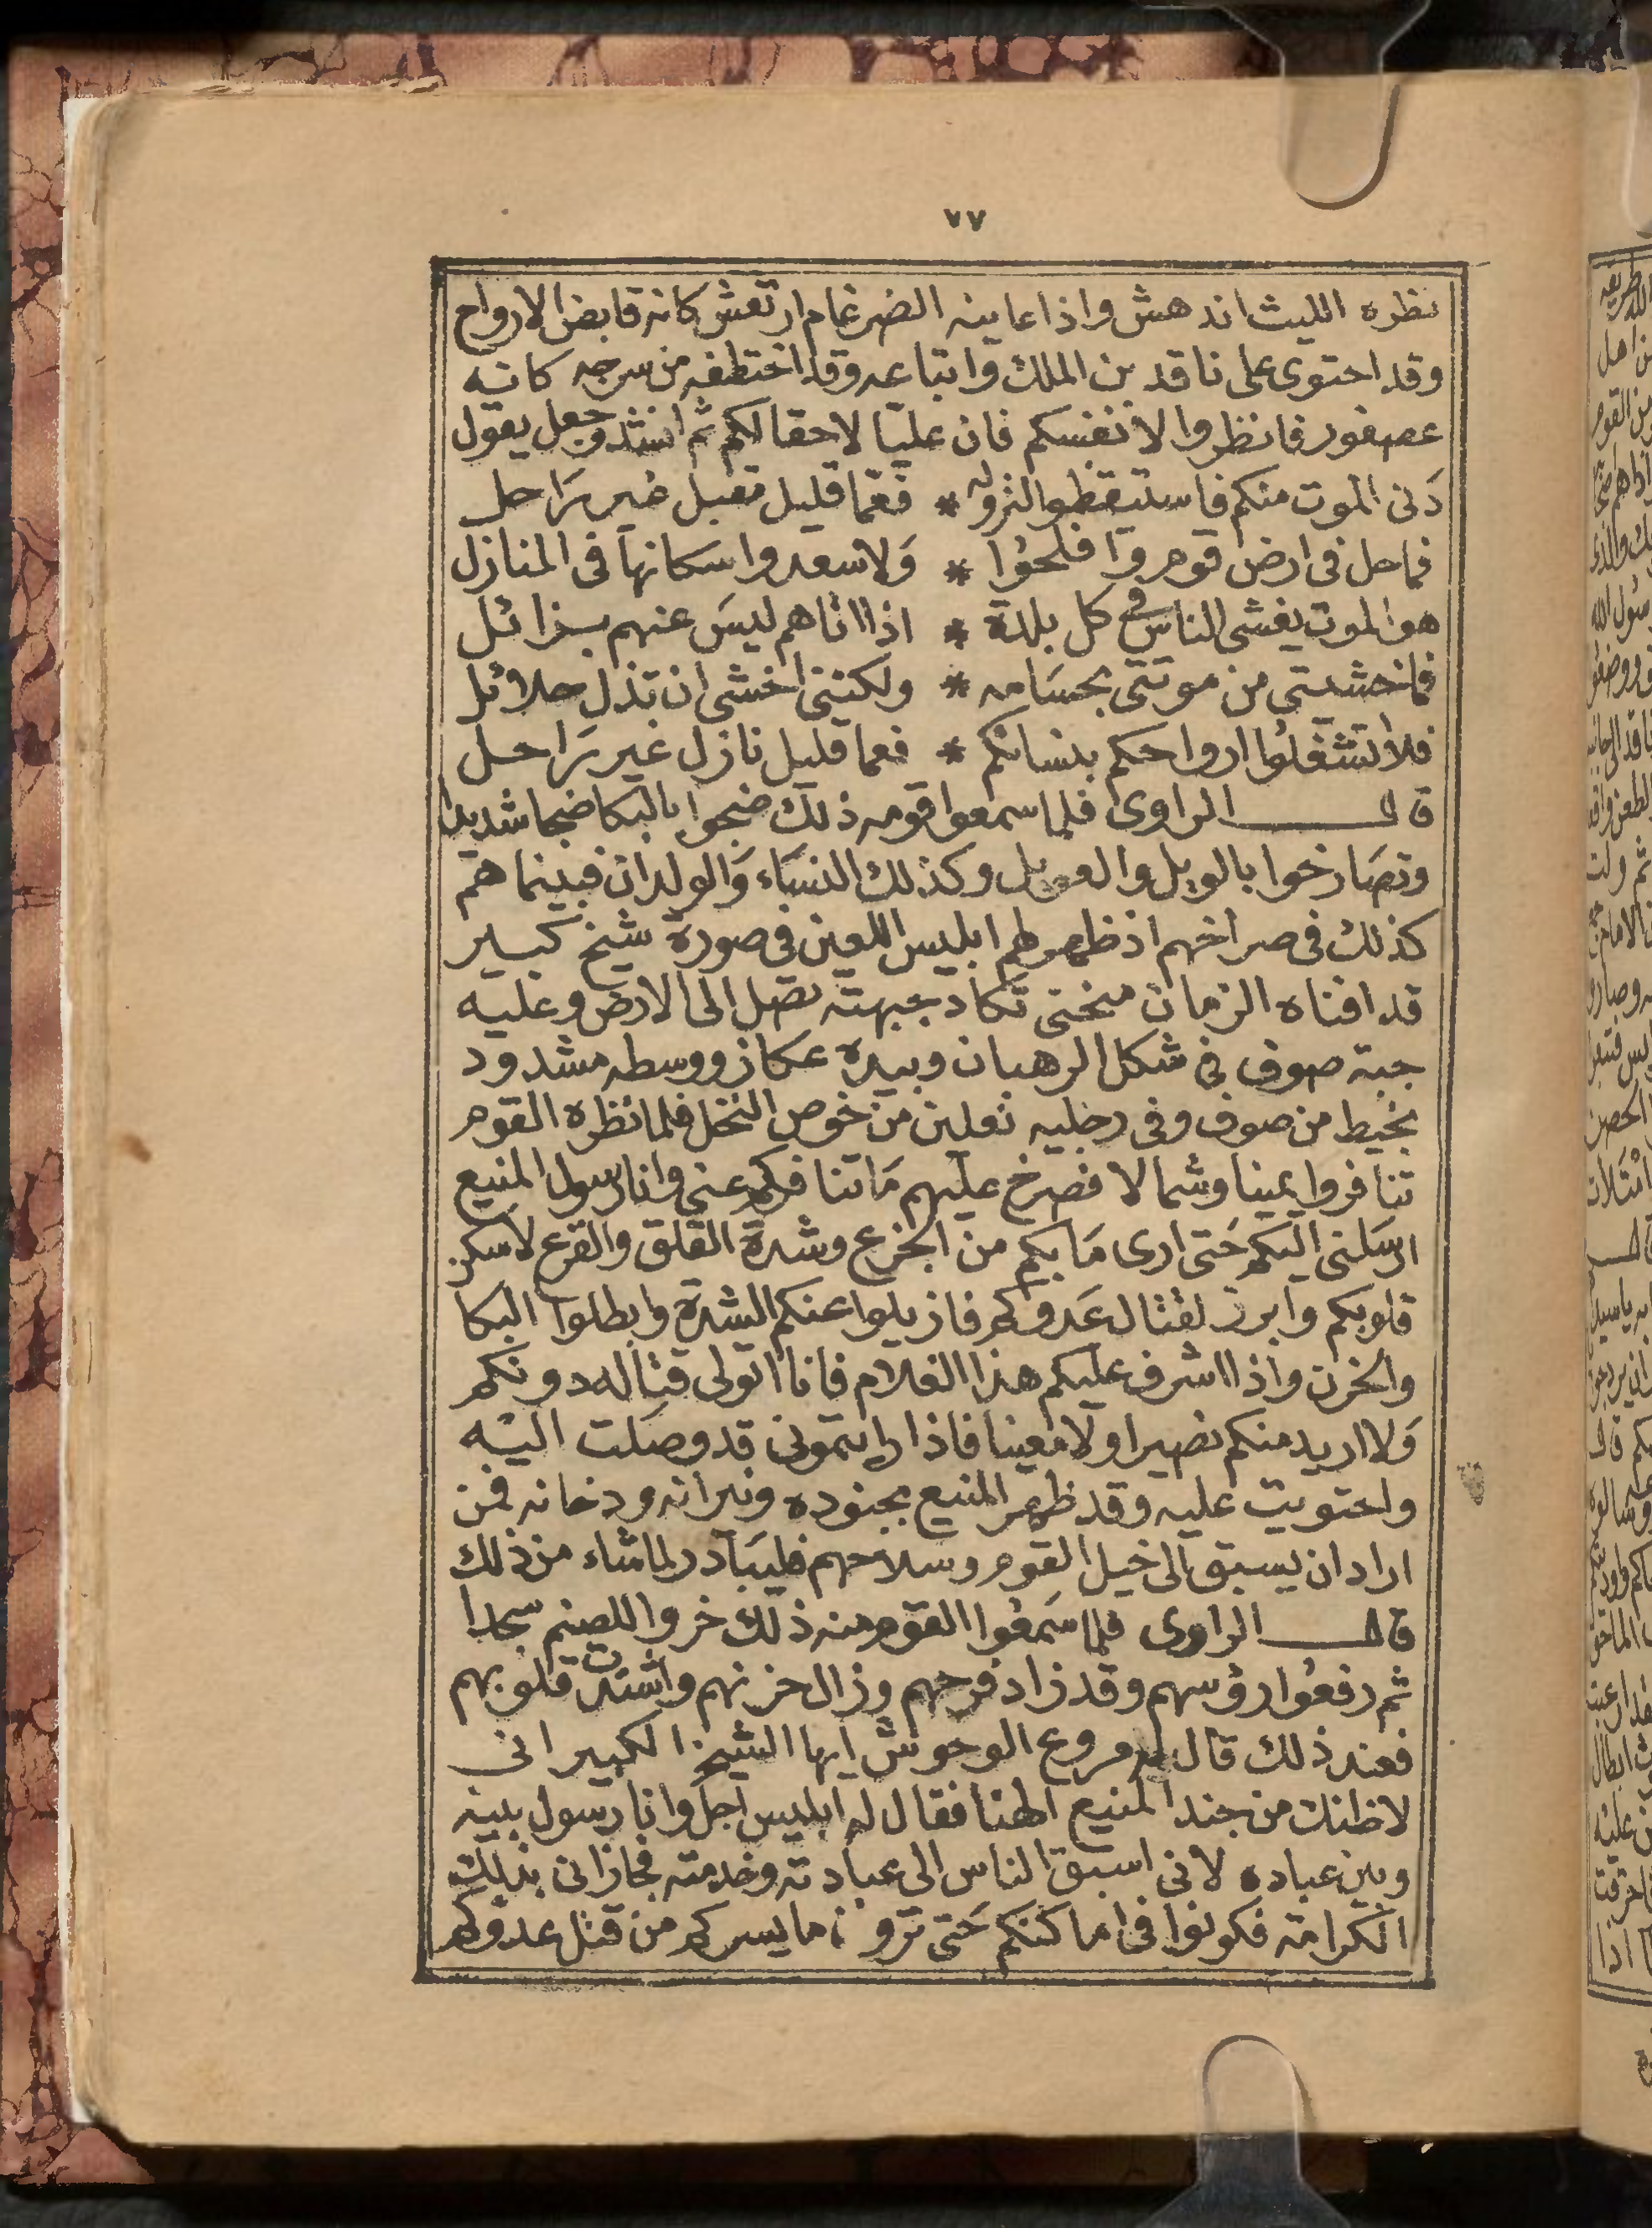 ٧٧
نظره الليث اندهش واذا عاينه الضرغام ارتعش كانه قابض الارواح
وقد احتوى على ناقد بن الملك واتباعه وقد اختطفه من سرجه كانه
عصفور فانظروا لانفسكم فان عليا لاحقا لكم ثم انشد وجعل يقول
دَنى الموت منكم فاستيقظوا لنزوله * فعَما قليل مقبل غير رَاحل
فما حل فى ارض قوم وَافلحُوا * وَلا سعدوا سكانهَا فى المنازل
هو الموت يغشى الناس فى كل بلدة * اذا اتاهم ليسَ عنهم بزائل
فما خشيتى من موتتى بحسَامه * ولكننى اخشى ان تذل حلائل
فلا تشغلوُا ارواحكم بنسائكم * فعما قليل نازل غير رَاحل
قال الراوى فلما سمعوا قومه ذلك ضجوا بالبكا ضجا شديدا
وتصَارخوا بالويل والعويل وكذلك النسَاء وَالولدان فبينما هم
كذلك فى صراخهم اذ ظهر لهم ابليس اللعين فى صورة شيخ كبير
قد افناه الزمان منحنى تكاد جبهته تصل الى الارض وعليه
جبة صوف فى شكل الرهبان وبيده عكاز ووسطه مشدود
بخيط من صوف وفى رجليه نعلين من خوص النخل فلما نظره القوم
تنافروا يمينا وشمالا فصرخ عليهم مَا تنافركم عنى وانا رسول المنيع
ارسَلنى اليكم حَتى ارى مَا بكم من الجزع وشدة القلق والفزع لاسكن
قلوبكم وابرز لقتال عَدوكم فازيلوا عنكم الشدة وابطلوا البكا
والحزن واذا اشرف عليكم هذا الغلام فانا اتولى قتاله دونكم
وَلا اريد منكم نصيرا ولا معينا فاذا رايتمونى قد وصَلت اليْه
واحتويت عليه وقد ظهر المنيع بجنوده ونيرانه ودخانه فمن
اراد ان يسبق الى خيل القوم وسلاحهم فليبَادر لما شاء من ذلك
قال الراوى فلما سَمعُوا القوم منه ذلك خروا للصنم سجدا
ثم رفعُوا رؤسهم وقد زاد فرحهم وزال حزنهم واشتدت قلوبهم
فعند ذلك قال له مروع الوحوش ايها الشيخ الكبير انى
لاظنك من جند المنيع الهنا فقال له ابليس اجل وانا رسول بينه
وبين عباده لانى اسبق الناس الى عبادته وخدمته فجازانى بذلك
الكرامة فكونوا فى اماكنكم حَتى ترون ما يسركم من قتل عدوكم